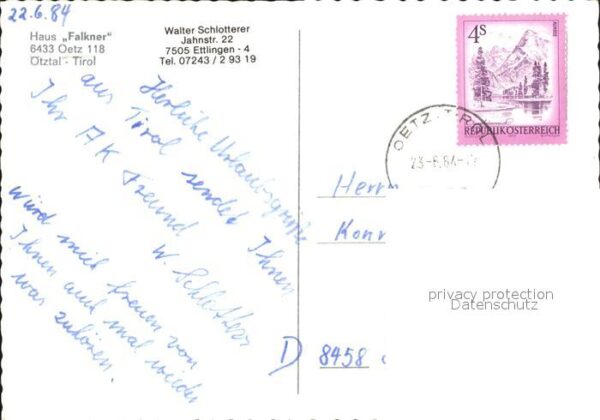 22.6.84
Haus „Falkner"
6433 Oetz 118
Ötztal - Tirol
Walter Schlotterer
Jahnstr. 22
7505 Ettlingen - 4
Tel. 07243 / 2 93 19
Herzliche Urlaubsgrüße
aus Tirol sendet Ihnen
Ihr AK Freund
W. Schlotterer
würd mich freuen von
Ihnen auch mal wieder
was zu hören.
4S
REPUBLIK ÖSTERREICH
OETZ TIROL
23-6.84-
Herrn
Konr
D 8458
privacy protection
Datenschutz